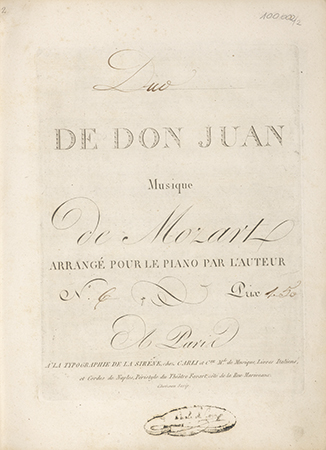 100.000/2
Duo
DE DON JUAN
Musique
de Mozart
ARRANGÉ POUR LE PIANO PAR L'AUTEUR
N.° 6 Prix 4.50
A Paris
A LA TYPOGRAPHIE DE LA SIRÈNE, chez CARLI et C.ie M.ds de Musique, Livres Italiens,
et Cordes de Naples, Péristyle du Théâtre Favart, côté de la Rue Marivaux